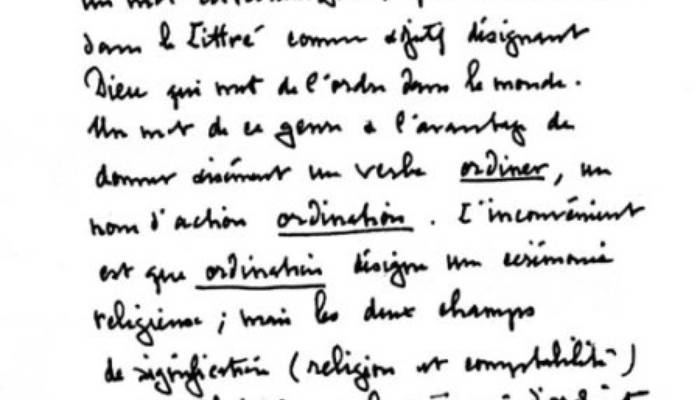 un mot
dans le Littré comme adjectif désignant
Dieu qui met de l'ordre dans le monde.
Un mot de ce genre a l'avantage de
donner aisément un verbe ordiner, un
nom d'action ordination. L'inconvénient
est que ordination désigne une cérémonie
religieuse ; mais les deux champs
de signification (religion et comptabilité)